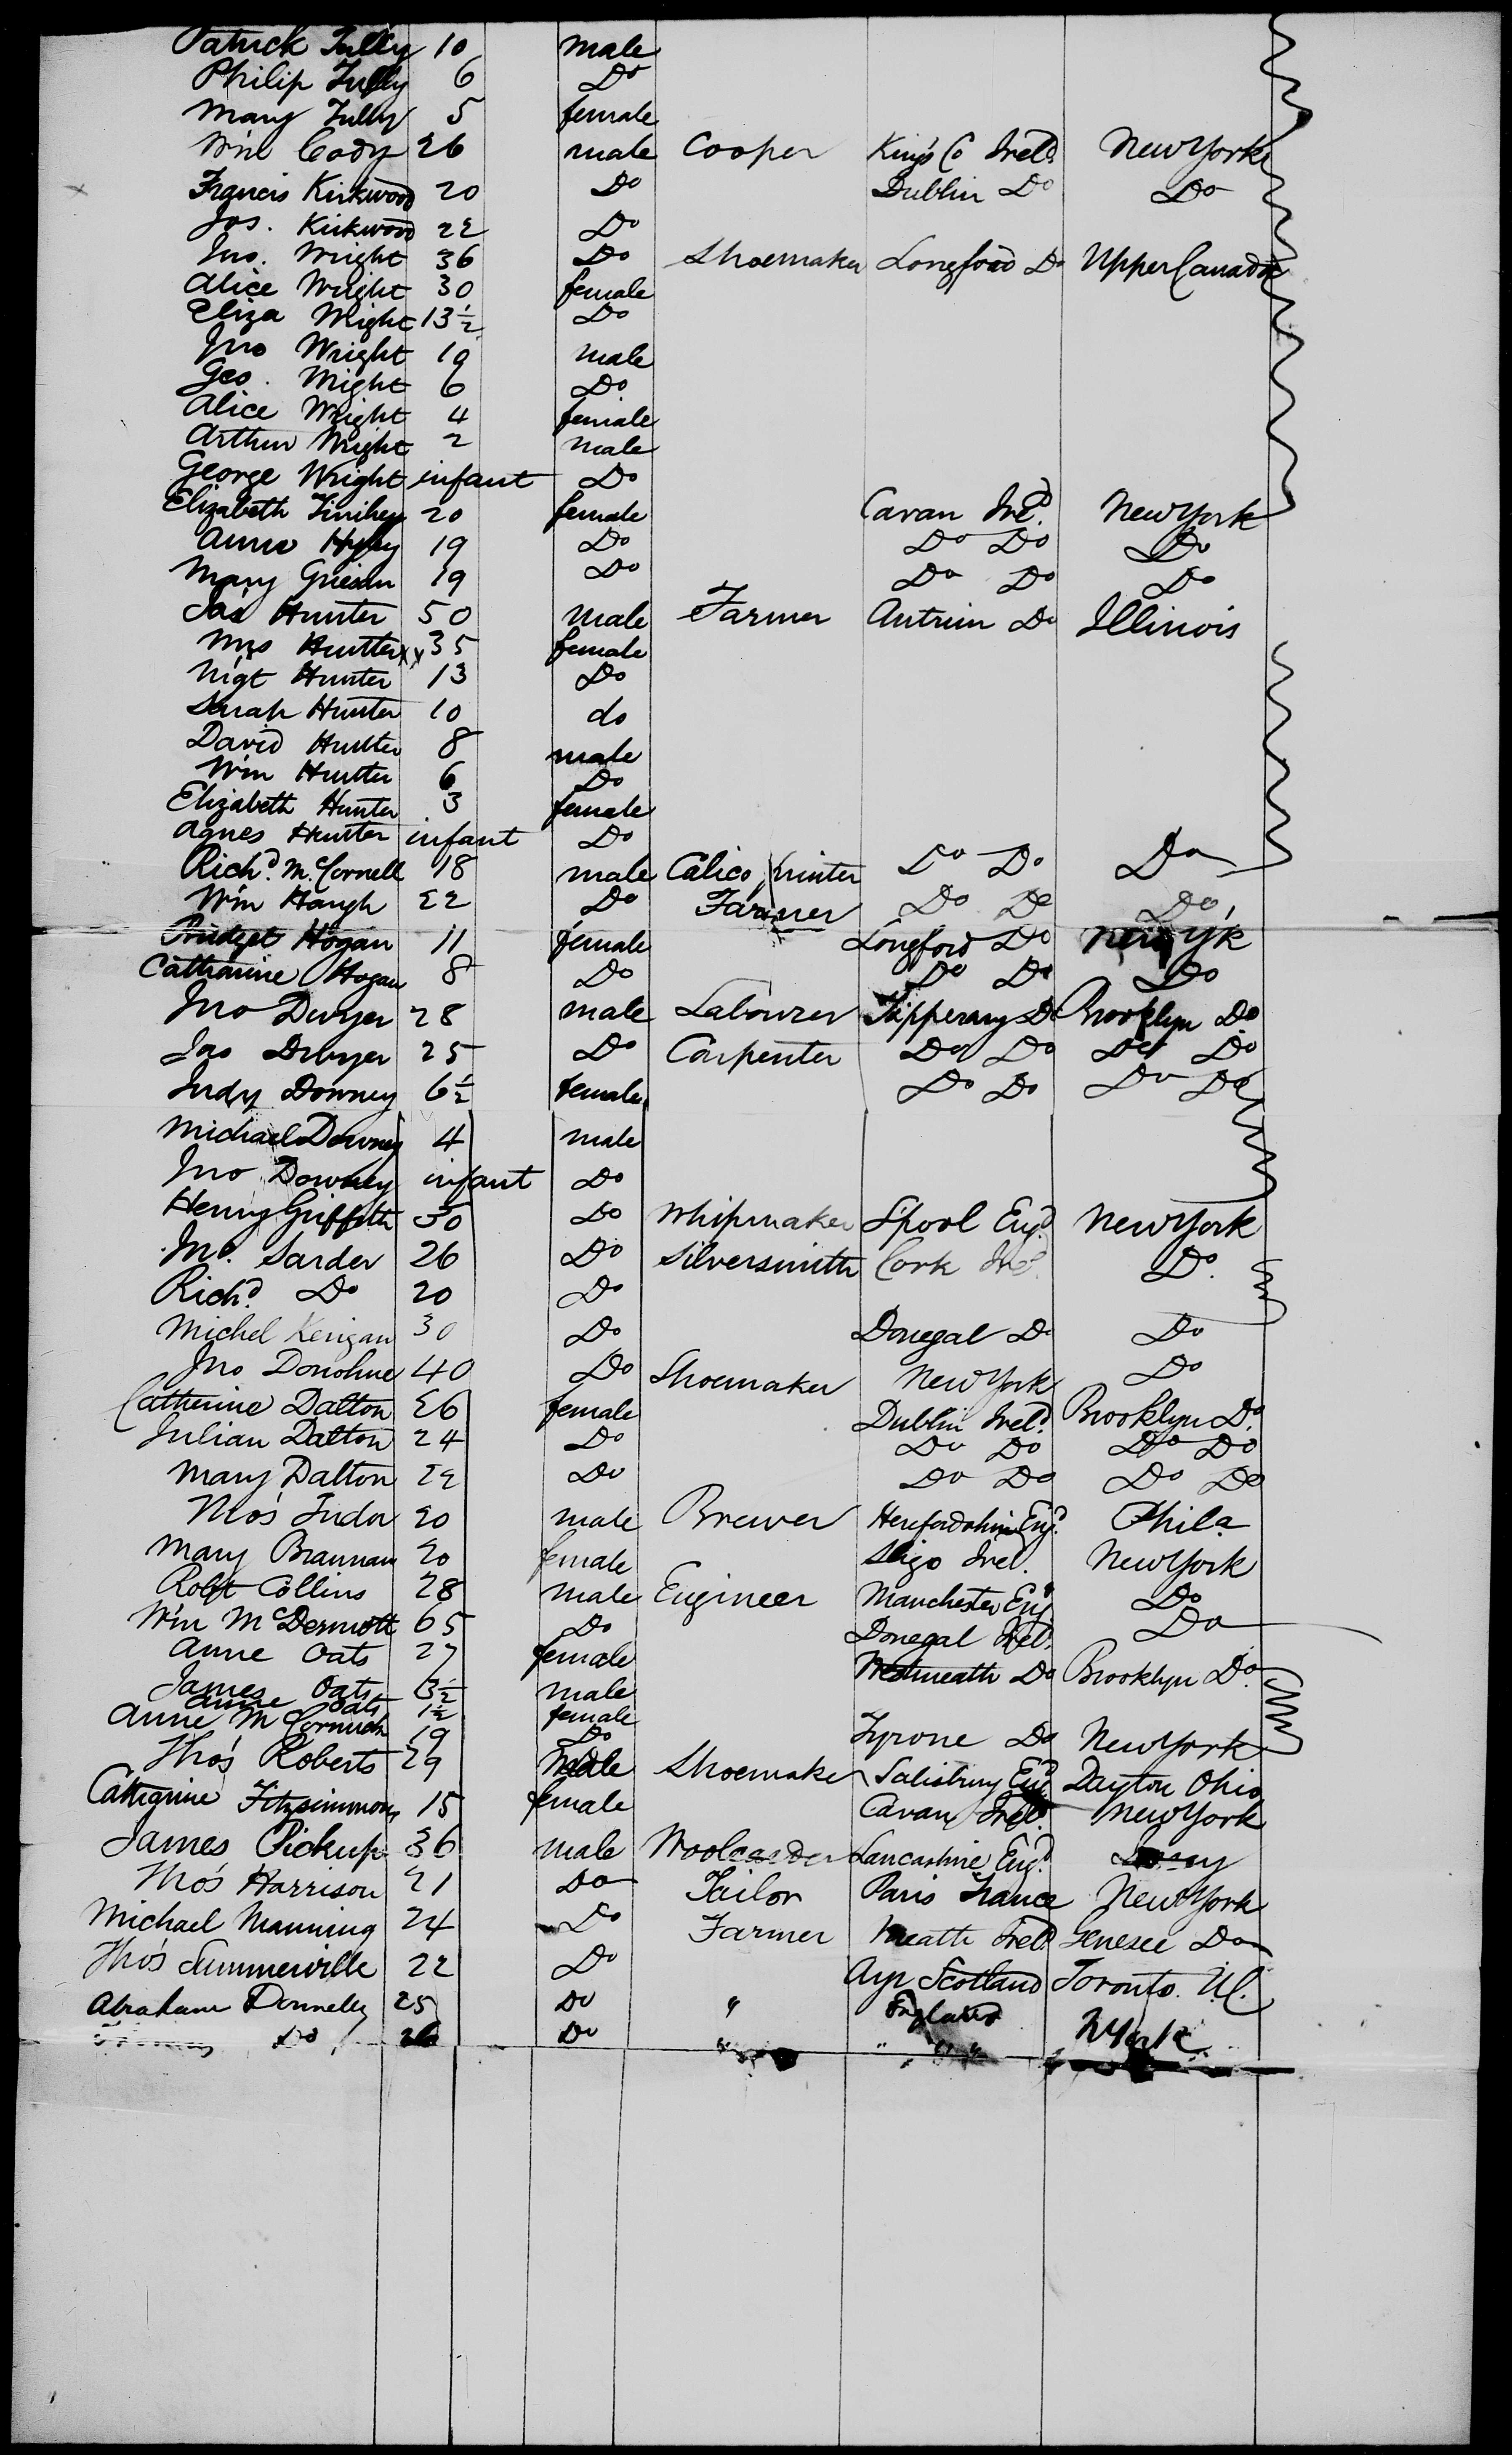 Patrick Tully 10 male
Philip Tully 6 Do
Mary Tully 5 female
Wm Cody 26 male Cooper King's Co Ireld. New York
Francis Kirkwood 20 Do Dublin Do Do
Jos. Kirkwood 22 Do
Jno. Wright 36 Do Shoemaker Longford Do Upper Canada
Alice Wright 30 female
Eliza Wright 13½ Do
Jno Wright 19 male
Geo. Wright 6 Do
Alice Wright 4 female
Arthur Wright 2 male
George Wright infant Do
Elizabeth 20 female Cavan Ireld. New York
Anne 19 Do Do Do Do
Mary 19 Do Do Do Do
Jas Hunter 50 male Farmer Antrim Do Illinois
Mrs Hunter 35 female
Migt Hunter 13 Do
Sarah Hunter 10 do
David Hunter 8 male
Wm Hunter 6 Do
Elizabeth Hunter 3 female
Agnes Hunter infant Do
Richd. McCornell 18 male Calico Printer Do Do Do
Wm Haugh 22 Do Farmer Do Do Do
Bridget Hogan 11 female Longford Do New Y'k
Catharine Hogan 8 Do Do Do Do
Jno Dwyer 28 male Labourer Tipperary Do Brooklyn Do
Jas Dwyer 25 Do Carpenter Do Do Do Do
Judy Downey 6½ female Do Do Do Do
Michael Downey 4 male
Jno Downey infant Do
Henry Griffith 50 Do Whipmaker L'pool Engd. New York
Jno. Sarder 26 Do Silversmith Cork Ireld. Do
Richd. Do 20 Do
Michel Kerigan 30 Do Donegal Do Do
Jno Donohue 40 Do Shoemaker New York Do
Catherine Dalton 26 female Dublin Ireld. Brooklyn Do
Julian Dalton 24 Do Do Do Do Do
Mary Dalton 22 Do Do Do Do Do
Thos Tudor 20 male Brewer Herefordshire Engd. Phila
Mary Brannan 20 female Sligo Irel. New York
Robt Collins 28 male Engineer Manchester Eng Do
Wm McDermott 65 Do Donegal Ireld. Do
Anne Oats 27 female Westmeath Do Brooklyn Do
James Oats 3½ male
Anne Oats 1½ female
Anne McCormick 19 Do Tyrone Do New York
Thos Roberts 29 Male Shoemaker Salisbury Engd Dayton Ohio
Catharine Fitzsimmons 15 female Cavan Ireld. New York
James Pickup 36 male Woolcarder Lancashire Engd.
Thos Harrison 21 Do Tailor Paris France New York
Michael Manning 24 Do Farmer Meath Ireld. Genesee Do
Thos Summerville 22 Do Ayr Scotland Toronto. U.C.
Abraham Donnelly 25 Do " England NYork
Do 26 Do " " " "